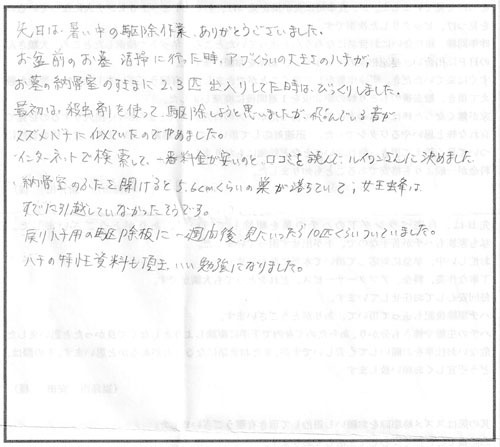 先日は、暑い中の駆除作業、ありがとうございました。
お盆前のお墓 清掃に行った時、アブくらいの大きさのハチが、
お墓の納骨室のすきまに 2、3匹 出入りしてた時は、びっくりしました。
最初は、殺虫剤を使って、駆除しようと思いましたが、飛んでいる音が
スズメバチに似ていたのでやめました。
インターネットで検索して、一番料金が安いのと、口コミを読んで、さんに決めました。
納骨室のふたを開けると5、6cmくらいの巣が落ちていて、女王蜂は、
すでに引越していなかったそうです。
戻りバチ用の駆除板に一週間後 見にいったら10匹くらいついていました。
ハチの特性資料も頂き、いい勉強になりました。